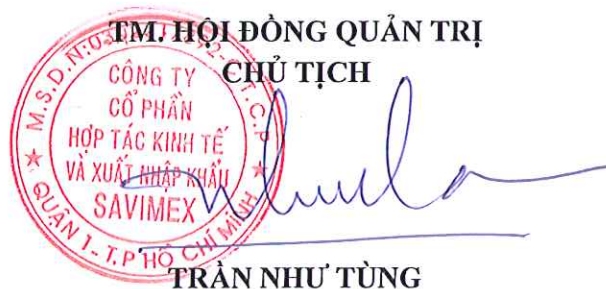 TM. HỘI ĐỒNG QUẢN TRỊ
CHỦ TỊCH
CÔNG TY
CỔ PHẦN
HỢP TÁC KINH TẾ
VÀ XUẤT NHẬP KHẨU
SAVIMEX
QUẬN 1 - T.P HỒ CHÍ MINH
TRẦN NHƯ TÙNG